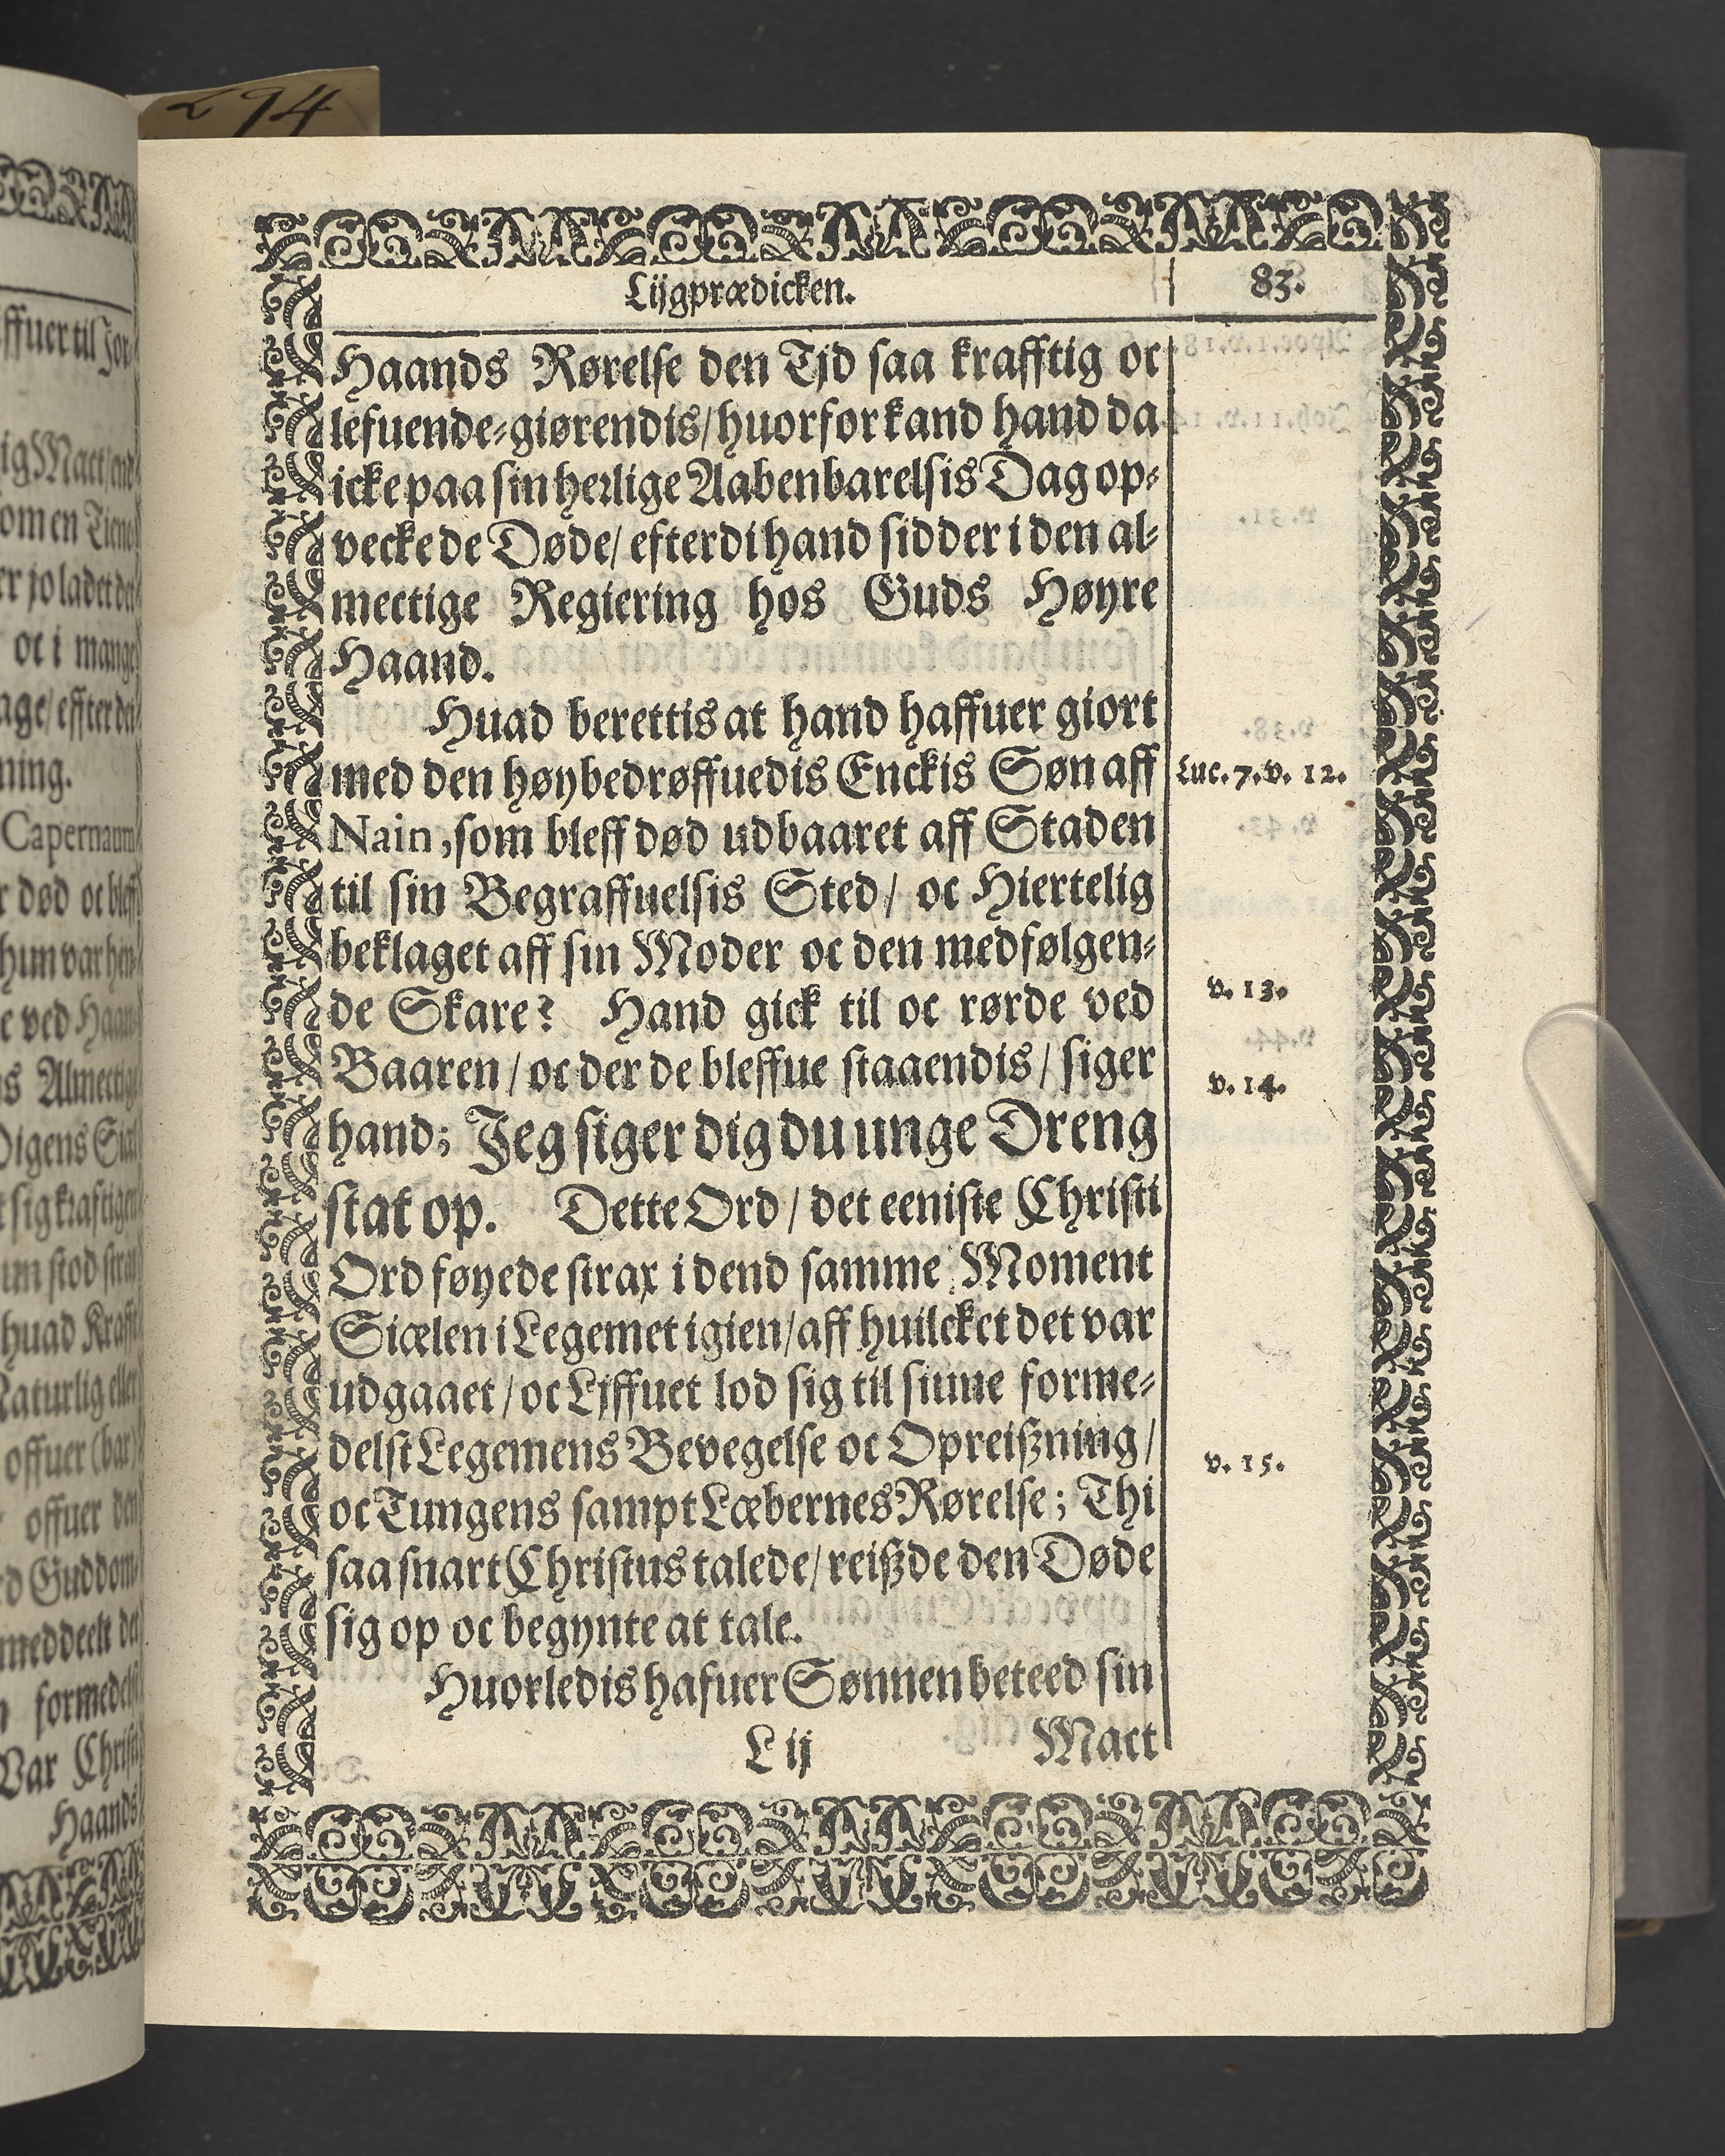 294
Lijgprædicken.
83.
Haands Rørelse den Tjd saa krafftig oc
lefuende-giørendis/huorfor kand hand da
icke paa sin herlige Aabenbarelsis Dag op-
vecke de Døde/ efterdi hand sidder i den al-
mectige Regiering hos Guds Høyre
Haand.
Huad berettis at hand haffuer giort
med den høybedrøffuedis Enckis Søn aff
Luc. 7. v. 12.
Nain, som bleff død udbaaret aff Staden
til sin Begraffuelsis Sted/ oc Hiertelig
beklaget aff sin Moder oc den medfølgen-
de Skare? Hand gick til oc rørde ved
v. 13.
Baaren/ oc der de bleffue staaendis/ siger
v. 14.
hand; Jeg siger dig du unge Dreng
stat op. Dette Ord/ det eeniste Christi
Ord føyede strax i dend samme Moment
Siælen i Legemet igien/aff huilcket det var
udgaaet/oc Ljffuet lod sig til siune forme-
delst Legemens Bevegelse oc Opreißning/
v. 15.
oc Tungens sampt Læbernes Rørelse; Thi
saa snart Christus talede/ reißde den Døde
sig op oc begynte at tale.
Huorledis hafuer Sønnen beteed sin
L ij
Mact
ffuer til Jor-
ig Mact/end
om en Tiene
er jo ladet det
oc i mange
age/effter det
ning.
Capernaum
r død oc bleff
hun var hen-
e ved Haan-
s Almectige
Digens Siæl
t sig krafftigen
un stod strax
huad Krafft
Naturlig eller
offuer (bar)
offuer den
d Guddom-
meddeelt det
formedelst
Var Christi
Haands